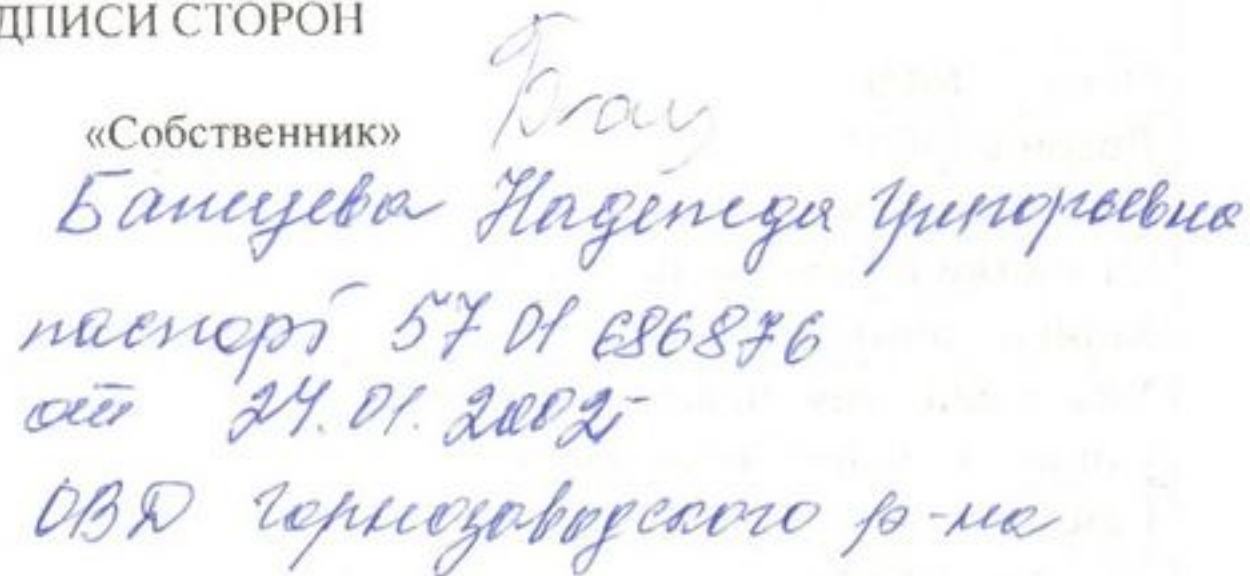 ДПИСИ СТОРОН
«Собственник»
Надежда Григорьевна
паспорт 57 01 686876
от 24.01.2002
ОВД Горнозаводского р-на